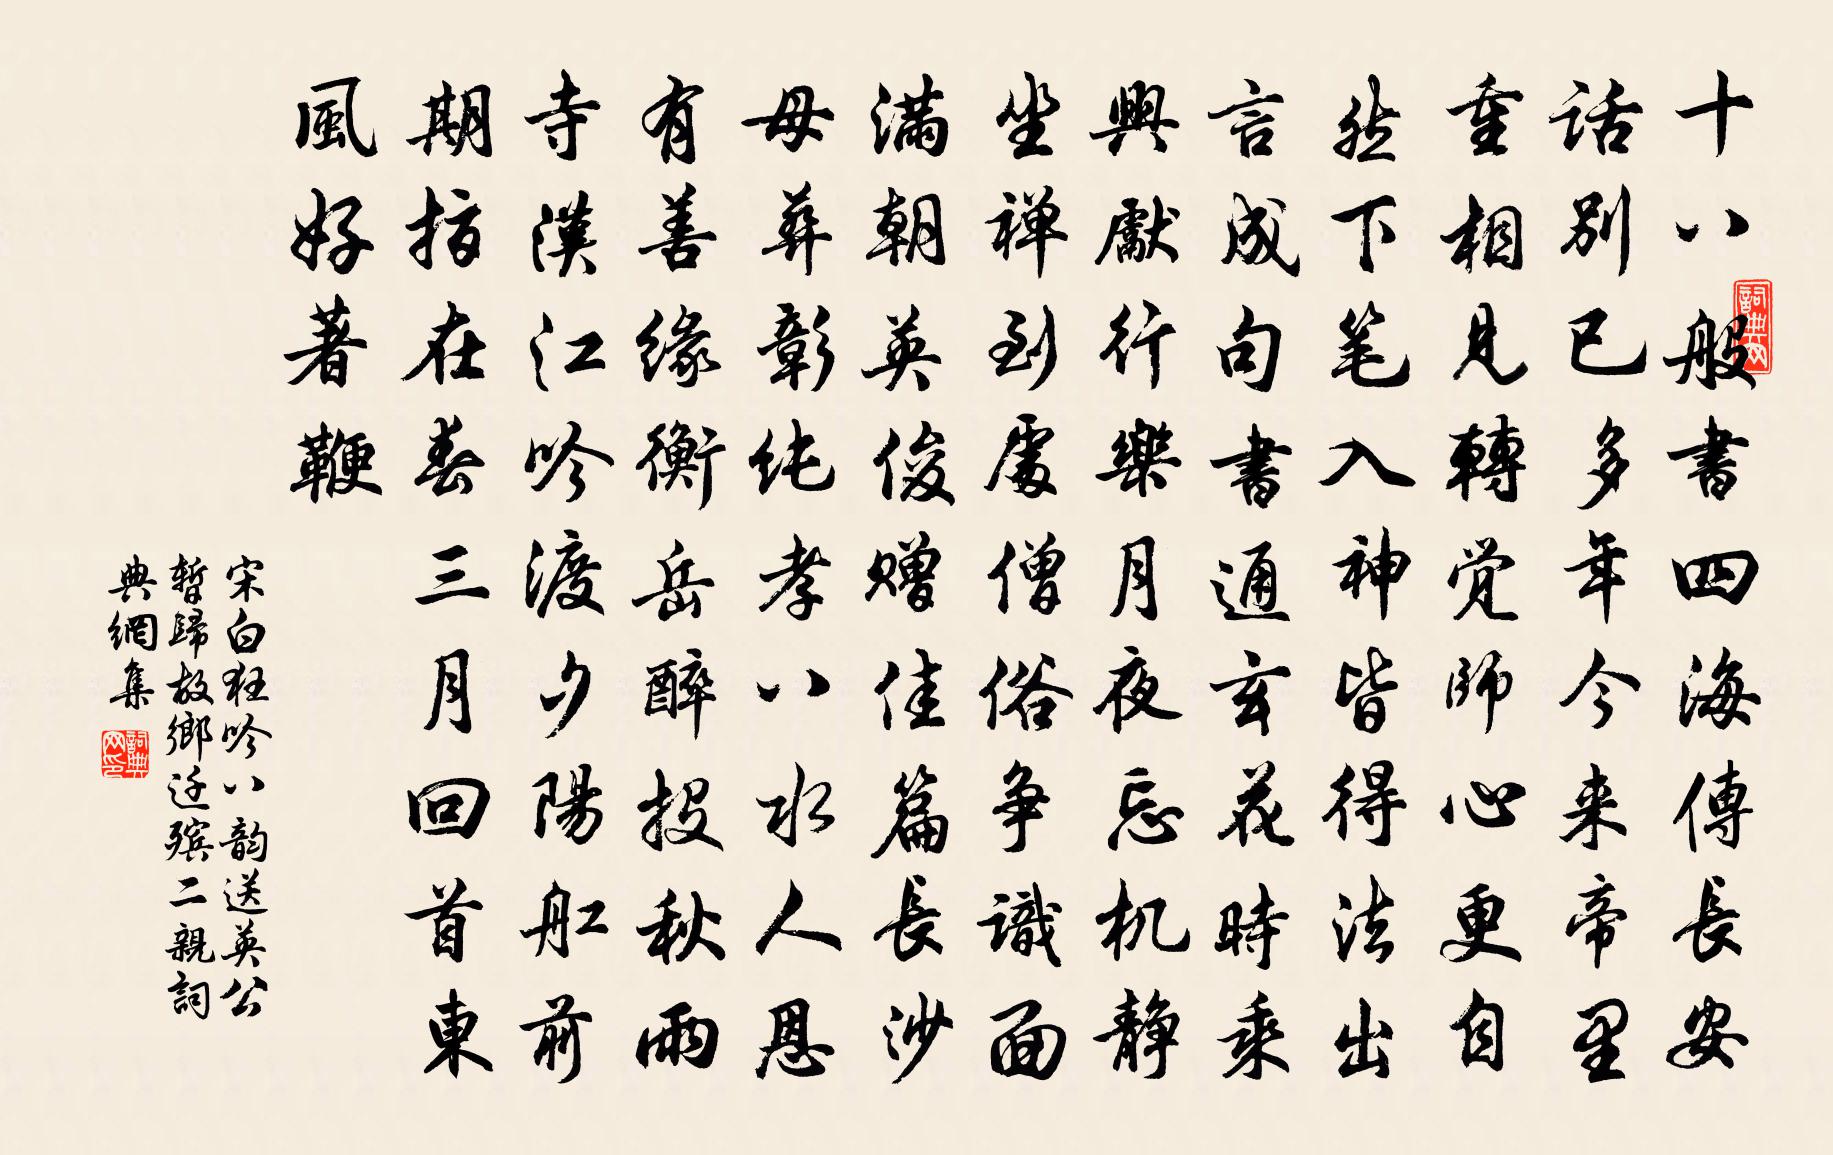 十八般書四海傳長安
話别已多年今来帝里
重相見轉觉師心更自
然下笔入神皆得法出
言成句書通玄花時乘
興獻行樂月夜忘机静
坐禅到處僧俗争識面
满朝英俊赠佳篇長沙
母葬彰纯孝八水人恩
有善缘衡岳醉投秋雨
寺漢江吟渡夕陽舡前
期指在春三月回首東
風好著鞭
宋白狂吟八韵送英公
暫歸故鄉迁殡二親詞
典網集
詞典网
詞典网印